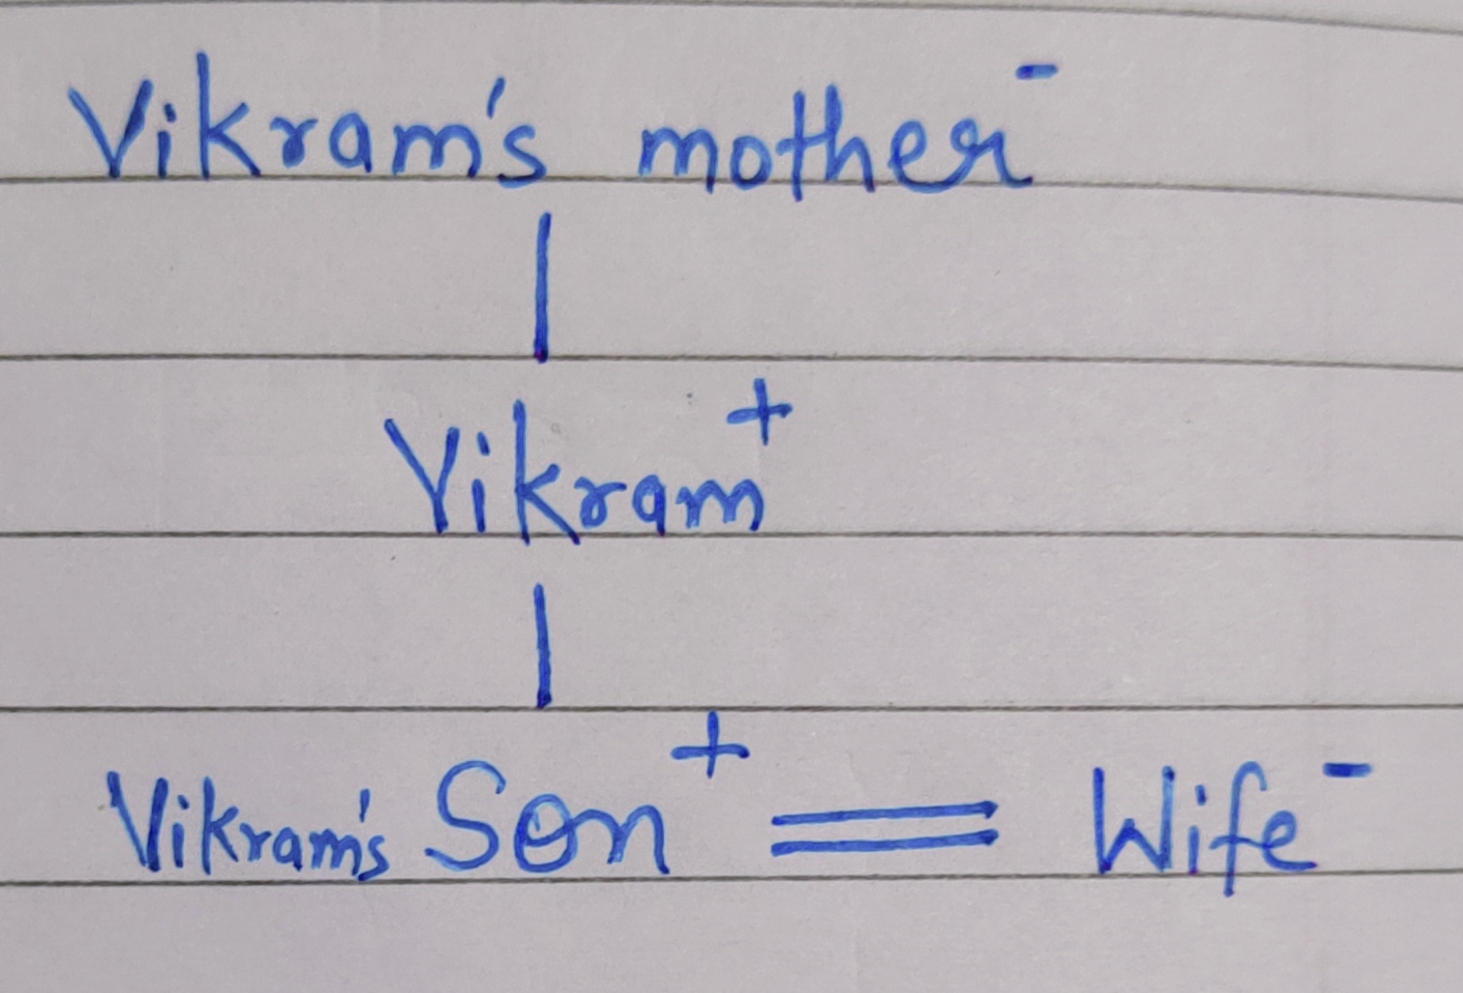 Vikram's mother -
|
Vikram +
|
Vikram's Son + = Wife -